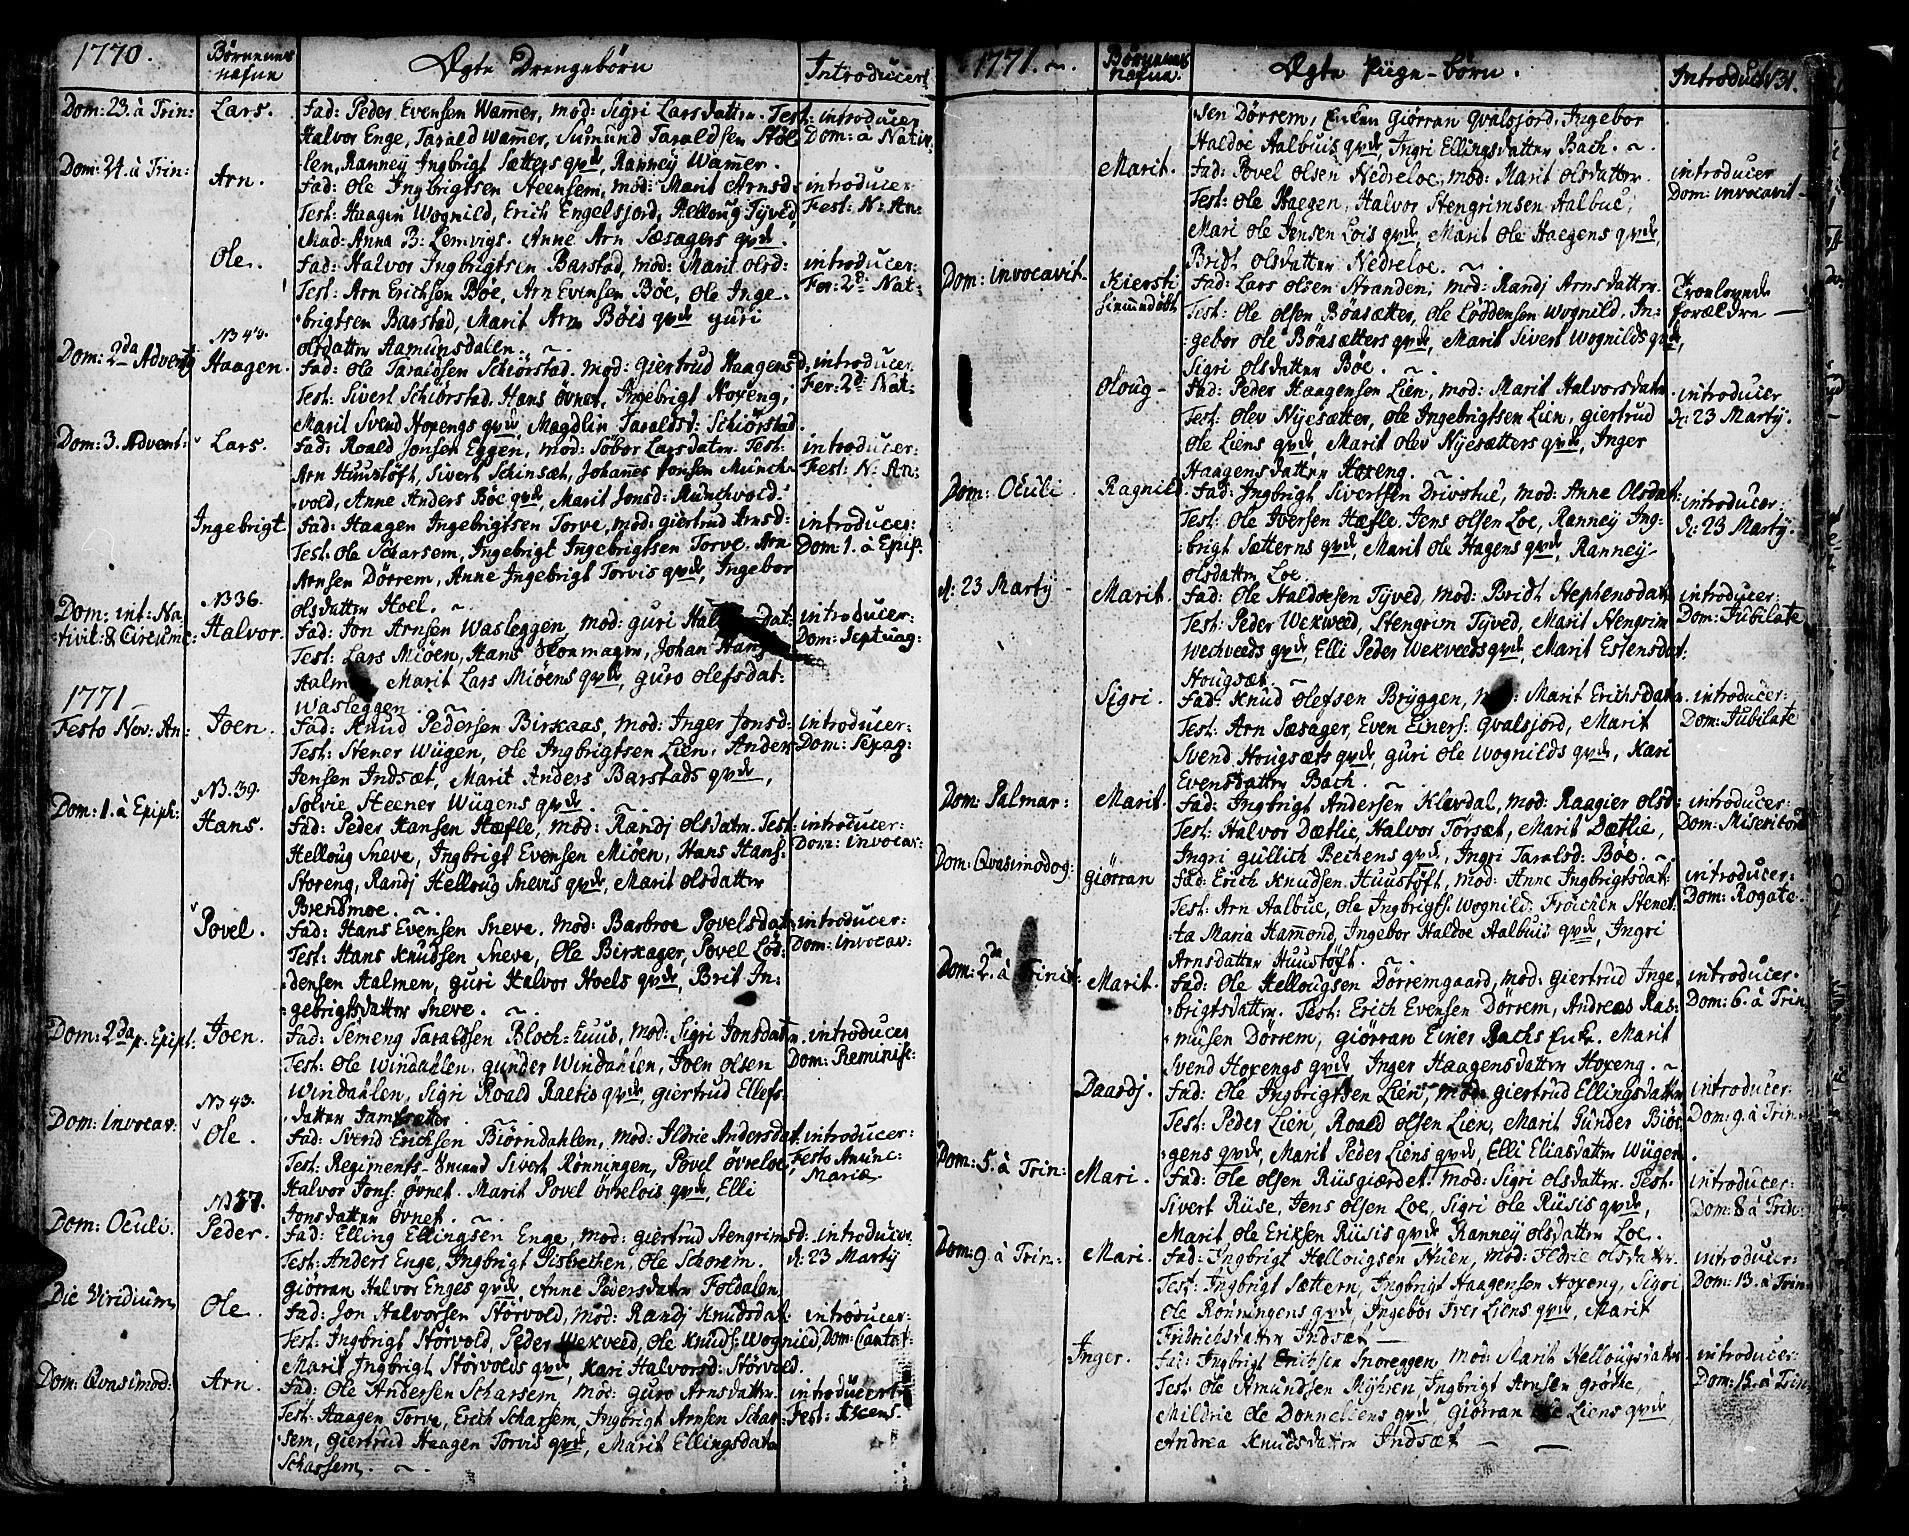 1770.
Børnenes nafne
Ægte Drengebørn
Introducert
Dom: 23. à Trin:
Lars.
Fad: Peder Evensen Wamer, mod: Sigri Larsdattr. Test:
Halvor Enge, Tarald Wamer, Sumund Taraldsen Stöl
len, Ranney Ingbrigt Sætters qvde, Ranney Wamer.
introducer
Dom: à Nativ.
Dom: 24. à Trin:
Arn.
Fad: Ole Ingbrigtsen Steensem, mod: Marit Arnsd:
Test: Haagen Wognild, Erich Engelsjord, Helloug Tyved,
Mad: Anna B: Lemvigs. Anne Arn Sæsagers qvde.
introducer:
Fest: N: An:
Ole.
Fad: Halvor Ingbrigtsen Barstad, mod: Marit olsd:
Test: Arn Erichsen Böe, Arn Evensen Böe, Ole Inge
brigtsen Barstad, Marit Arn Böis qvde guri
olsdattr Aamunsdallen.
introducer:
Fer: 2de Nat:
Dom: 2da Advent
Haagen.
Fad: Ole Taraldsen Schiörstad. mod: giertrud Haagensd.
Test: Sivert Schiörstad, Hans övnet, Ingebrigt Hoxeng,
Marit Svend Hoxengs qvde, Magdlin Taraldsd: Schiörstad.
introducer
Fer: 2de Nat:
Dom: 3. Advent:
Lars.
Fad: Roald Jonsen Eggen, mod: Söbor Larsdatr. Test:
Arn Huustöft, Sivert Schinsæt, Johanes Jonsen Munck-
vold, Anne Anders Böe qvde, Marit Jonsd: Munchvold.
introducer:
Fest: N: An:
Ingebrigt
Fad: Haagen Ingebrigtsen Torve, mod: giertrud Arnsd:
Test: Ole Scharsem, Ingebrigt Ingebrigtsen Torve. Arn
Arnsen Dörrem, Anne Ingebrigt Torvis qvde, Ingebor
olsdatter Hoel.
introducer:
Dom: 1. à Epip:
Dom: int: Na
tivit: & Circumc:
NB 36.
Halvor.
Fad: Jon Arnsen Wasleggen, mod: guri
Test: Lars Miöen, Hans Skonmager, Johan
Marit Lars Miöens qvde, guro olefsdat:
Wasleggen.
introducer:
Dom: Septuag:
1771
Festo Nov: An:
Joen.
Fad: Knud Pedersen Birkaas, mod: Inger Jonsd:
Test: Stener Wügen, Ole Ingbrigtsen Lien. Anders
Jensen Indsæt, Marit Anders Barstads qvde,
Solvie Steener Wügens qvde.
introducer:
Dom: Sexag:
Dom: 1. à Epiph:
NB. 39.
Hans.
Fad: Peder Hansen Hæfle, mod: Randj olsdatr. Test:
Helloug Sneve, Ingbrigt Evensen Miöen, Hans Hans:
Storeng, Randj Helloug Snevis qvde, Marit olsdattr
Brendmoe.
introducer:
Dom: invocav:
Povel.
Fad: Hans Evensen Sneve. mod: Barbroe Povelsdat:
Test: Hans Knudsen Sneve, Ole Birkager, Povel Löd-
densen Halmen, guri Halvor Hoels qvde, Brit In-
gebrigtsdatter Sneve.
introducer:
Dom: invocav:
Dom: 2da p. Epiph:
Joen.
Fad: Semeng Taraldsen Bloch-Huus, mod: Sigri Jonsdattr.
Test: Ole Windahlen, gunder Windahlen, Joen olsen
Windahlen, Sigri Roald Raetis qvde, giertrud Ellefs-
datter Jamtsætter
introducer
Dom: Reminisc:
Dom: Invocav:
NB 43.
Ole.
Fad: Svend Erichsen Biörndahlen, mod: Ildrie Andersdat.
Test: Regiments-Smed Sivert Rönningen, Povel övreloe,
Halvor Jons: övnet. Marit Povel övrelois qvde, Elli
Jonsdatter övnet.
introducer:
Festo Anunc: Mariæ
Dom: Oculi.
NB 37.
Peder.
Fad: Elling Ellingsen Enge, mod: giertrud Stengrimsd.
Test: Anders Enge, Ingbrigt Gisbrechen, Ole Schorem.
giörran Halvor Enges qvde, Anne Pedersdattr Foldalen
introducer
d: 23 Martÿ
Die Viridium
Ole.
Fad: Jon Halvorsen Störvold, mod: Randj Knudsdat:
Test: Ingbrigt Störvold, Peder Wekveed, Ole Knuds: Wognild,
Marit Ingbrigt Störvolds qvde, Kari Halvorsd: Störvold.
introducer:
Dom: Cantat:
Dom: Qvasimod:
Arn.
Fad: Ole Andersen Scharsem, mod: guro Arnsdattr.
Test: Haagen Torve, Erich Scharsem, Ingbrigt Arnsen Schar-
sem, giertrud Haagen Torvis qvde, Marit Ellingsdatr
Scharsem.
introducert
Fest: Ascens.
1771.
Børnenes nafne
Ægte Püge-børn.
Introduct
131.
sen Dörrem, Enken Giörran Qvalsjord, Ingebor
Haldoe Aalbuis qvde, Ingri Ellingsdatter Bach.
Marit.
Fad: Povel olsen Nedreloe, mod: Marit olsdattr.
Test: Ole Haegen, Halvor Stengrimsen Aalbue,
Mari Ole Jensen Lois qvde, Marit Ole Haegens qvde,
Bridt olsdatter Nedreloe.
introducer
Dom: invocavit
Dom: invocavit.
Kiersti
Fad: Lars olsen Stranden, mod: Randj Arnsdattr.
Test: Ole olsen Böasætter, Ole Löddensen Wognild, In-
gebor Ole Böasætters qvde, Marit Sivert Wognilds qvde,
Sigri olsdatter Böe.
Troelovede
forældre
Oloug
Fad: Peder Haagensen Lien, mod: Marit Halvorsdattr.
Test: Olev Nyesætter, Ole Ingebrigtsen Lien, giertrud
Ole Liens qvde, Marit olev Nyesætters qvde, Inger
Haagensdatter Hoxeng.
introducer
d: 23 Martÿ.
Dom: Oculi.
Ragnild.
Fad: Ingbrigt Sivertsen Drivstue, mod: Anne Olsdat:
Test: Ole Iversen Hæfle, Jens olsen Loe, Ranney Ing-
brigt Sætterns qvde, Marit Ole Hagens qvde, Ranney
olsdattr Loe.
introducer:
d: 23 Martÿ.
d: 23 Martÿ
Marit.
Fad: Ole Haldoesen Tyved, mod: Bridt Stephensdat:
Test: Peder Wekveed, Stengrim Tyved, Marit Stengrim
Weckveeds qvde, Elli Peder Wekveeds qvde, Marit Estensdat:
Hougsæt.
introducer:
Dom: Jubilate
Sigri.
Fad: Knud Olefsen Bryggen, Marit Erichsdatr.
Test: Arn Sæsager, Even Einers: Qvalsjord, Marit
Svend Hougsæts qvde, guri Ole Wognilds qvde, Kari
Evensdattr Bach.
introducer:
Dom: Jubilate
Dom: Palmar:
Marit.
Fad: Ingbrigt Andersen Klevdal, mod: Raagier olsd:
Test: Halvor Dætlie, Halvor Torsæt, Marit Dætlie,
Ingri güllich Bechens qvde, Ingri Taralsd: Böe.
introducer:
Dom: Misericord
Dom: Qvasimodog:
giörran
Fad: Erich Knudsen Huustöft, mod: Anne Ingbrigtsdat:
Test: Arn Aalbue, Ole Ingbrigts: Wognild. Fröichen Stenet-
ta Maria Hamond, Ingebor Haldoe Aalbuis qvde, Ingri
Arnsdatter Huustöft.
introducer:
Dom: Rogate.
Dom: 2de à Trinit:
Marit.
Fad: Ole Hellougsen Dörremgaard, mod: giertrud Inge-
brigtsdattr. Test: Erich Evensen Dörrem, Andreas Ras-
musen Dörrem, giörran Einer Bachs Enke. Marit
Svend Hoxengs qvde, Inger Haagensdatter Hoxeng.
introducer.
Dom: 6. à Trin
Daardj.
Fad: Ole Ingbrigtsen Lien, mod: giertrud Ellingsdatter
Test: Peder Lien, Roald olsen Lien, Marit Günder Biör-
gens qvde, Marit Peder Liens qvde, Elli Eliasdattr Wügen.
introducer:
Dom: 9. à Trin
Dom: 5. à Trin:
Mari.
Fad: Ole olsen Rüsgiærdet. mod: Sigri olsdattr. Test:
Sivert Rüse, Jens olsen Loe, Sigri Ole Rüsis qvde,
Marit Ole Eriksen Rüsis qvde Ranney olsdatter Loe.
introducer:
Dom: 8 à Trin:
Dom: 9. à Trin:
Mari.
Fad: Ingbrigt Hellougsen Stuen, mod: Ildrie olsdattr.
Test: Ingbrigt Sættern, Ingbrigt Haagensen Hoxeng, Sigri
Ole Rönningens qvde, Ingebör Iver Liens qvde, Marit
Fridrichsdatter Indsæt
introducer:
Dom: 13. à Trin
Inger.
Fad: Ingbrigt Erichsen Snoreggen, mod: Marit Hellougsdattr.
Test: Ole Amundsen Myhren, Ingbrigt Arnsen grötte,
Mildrie Ole Donneliens qvde, giörran Ole Liens qvde,
Andrea Knudsdatter Indsæt
introducer:
Dom: 15. à Trin